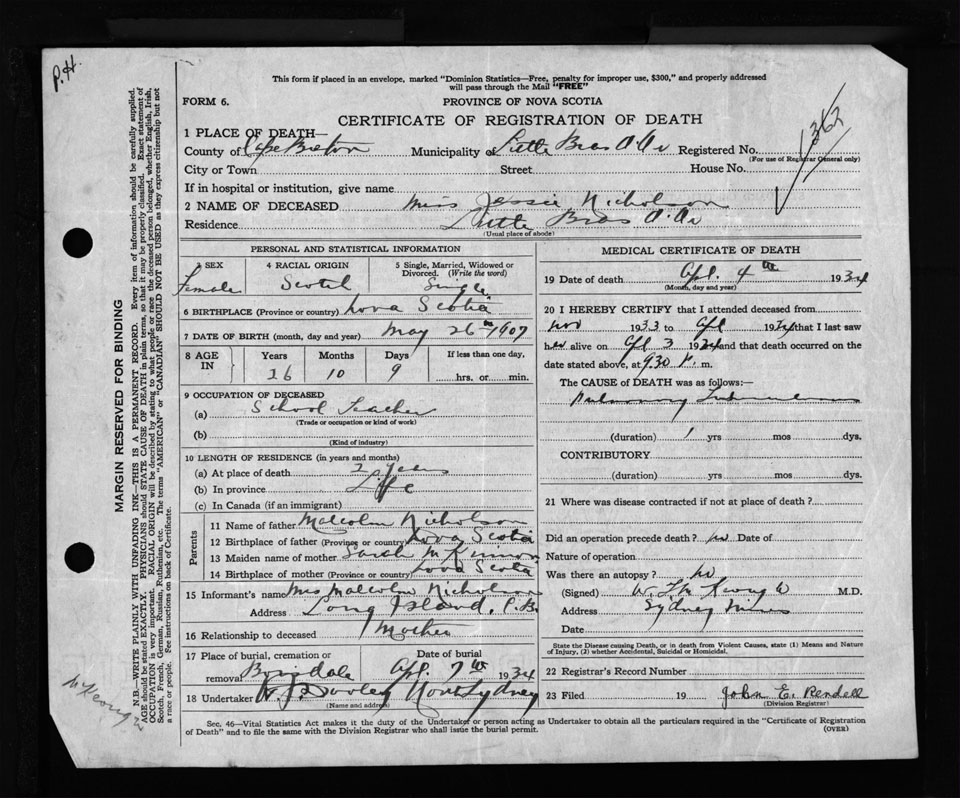 P.H.
This form if placed in an envelope, marked "Dominion Statistics—Free, penalty for improper use, $300," and properly addressed
will pass through the Mail "FREE"
FORM 6.
PROVINCE OF NOVA SCOTIA
CERTIFICATE OF REGISTRATION OF DEATH
362
1 PLACE OF DEATH—
County of Cape Breton Municipality of Little Bras d'Or Registered No.
(For use of Registrar General only)
City or Town Street House No.
If in hospital or institution, give name
2 NAME OF DECEASED Miss Jessie Nicholson
Residence Little Bras d'Or
(Usual place of abode)
PERSONAL AND STATISTICAL INFORMATION
3 SEX 4 RACIAL ORIGIN 5 Single, Married, Widowed or Divorced. (Write the word)
Female Scotch Single
6 BIRTHPLACE (Province or country) Nova Scotia
7 DATE OF BIRTH (month, day and year) May 26th 1907
8 AGE IN Years Months Days If less than one day,
26 10 9 hrs. or min.
9 OCCUPATION OF DECEASED
(a) School Teacher
(Trade or occupation or kind of work)
(b)
(Kind of industry)
10 LENGTH OF RESIDENCE (in years and months)
(a) At place of death years
(b) In province Life
(c) In Canada (if an immigrant)
Parents
11 Name of father Malcolm Nicholson
12 Birthplace of father (Province or country) Nova Scotia
13 Maiden name of mother Sarah McKinnon
14 Birthplace of mother (Province or country) Nova Scotia
15 Informant's name Mrs Malcolm Nicholson
Address Long Island, C.B.
16 Relationship to deceased Mother
17 Place of burial, cremation or removal Boisdale Date of burial Apl. 7th 1934
18 Undertaker Dooley North Sydney
(Name and address)
MEDICAL CERTIFICATE OF DEATH
19 Date of death Apl. 4th 1934
(Month, day and year)
20 I HEREBY CERTIFY that I attended deceased from
Nov 1933 to Apl 1934 that I last saw
her alive on Apl 3 1934 and that death occurred on the
date stated above, at 9.30 P. m.
The CAUSE OF DEATH was as follows:—
Pulmonary Tuberculosis
(duration) 1 yrs mos dys.
CONTRIBUTORY
(duration) yrs mos dys.
21 Where was disease contracted if not at place of death?
Did an operation precede death? no Date of
Nature of operation
Was there an autopsy? no
(Signed) M.D.
Address Sydney Mines
Date
State the Disease causing Death, or in death from Violent Causes, state (1) Means and Nature
of Injury, (2) whether Accidental, Suicidal or Homicidal.
22 Registrar's Record Number
23 Filed 19 John E. Rendell
(Division Registrar)
Sec. 46—Vital Statistics Act makes it the duty of the Undertaker or person acting as Undertaker to obtain all the particulars required in the "Certificate of Registration
of Death" and to file the same with the Division Registrar who shall issue the burial permit.
(OVER)
MARGIN RESERVED FOR BINDING
N.B.—WRITE PLAINLY WITH UNFADING INK—THIS IS A PERMANENT RECORD. Every item of information should be carefully supplied.
AGE should be stated EXACTLY. PHYSICIANS should STATE CAUSE OF DEATH in plain terms, so that it may be properly classified. Exact statement of
OCCUPATION is very important. RACIAL ORIGIN will be described by stating to what people or race the deceased person belonged, whether English, Irish,
Scotch, French, German, Russian, Ruthenian, etc. The terms "AMERICAN" or "CANADIAN" SHOULD NOT BE USED as they express citizenship but not
a race or people. Fee instructions on back of Certificate.